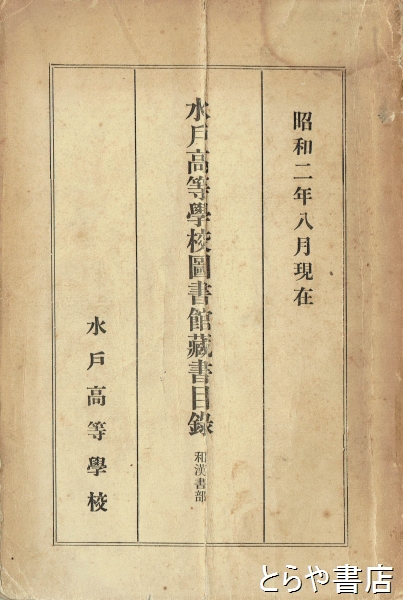 昭和二年八月現在
水戶高等學校圖書館藏書目錄 和漢書部
水戶高等學校
とらや書店